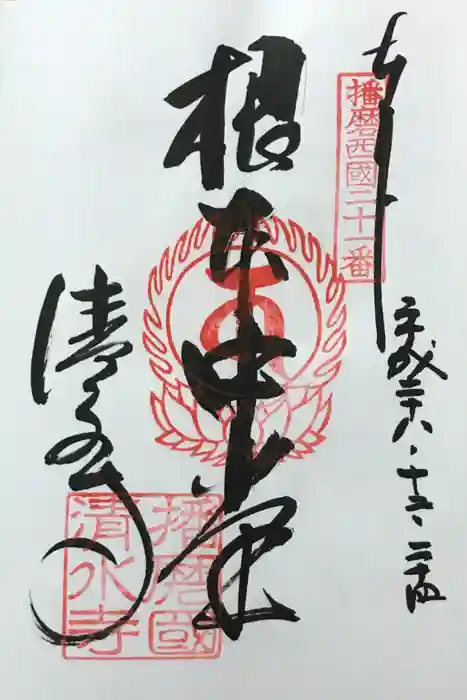 奉拝
播磨西國二十一番
平成二十八・十二・二十四
根本中堂
清水寺
播磨國
清水寺